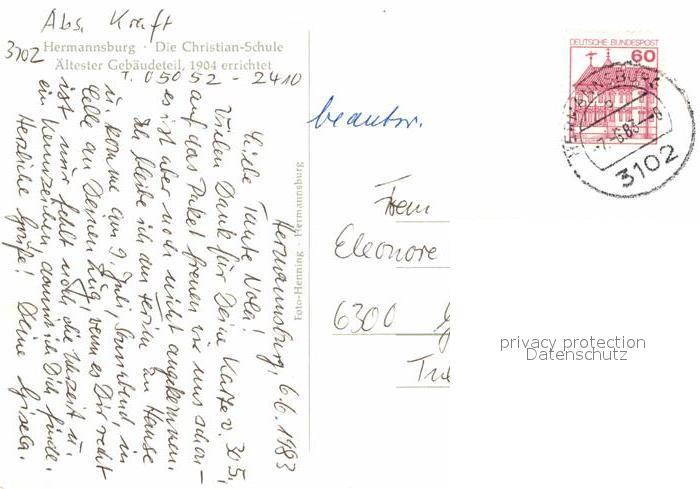 Abs. Kraft
3102 Hermannsburg · Die Christian-Schule
Ältester Gebäudeteil, 1904 errichtet
T. 05052 - 2410
Hermannsburg, 6.6.1983
Liebe Tante Nola!
Vielen Dank für Deine Karte v. 30.5.,
auf das Paket freuen wir uns schon -
es ist aber noch nicht angekommen.
Da bleibe ich am Termin zu Hause
u. komme am 9. Juli, Sonnabend, in
Celle an Deinen Zug, wenn es Dir recht
ist, mir fehlt noch die Uhrzeit u.
ein Kennzeichen damit ich Dich finde.
Herzliche Grüße! Deine Gisela.
Foto-Henning · Hermannsburg
beantw.
DEUTSCHE BUNDESPOST
60
HERMANNSBURG
-7.-6.83-
3102
Eleonore
6300
privacy protection
Datenschutz